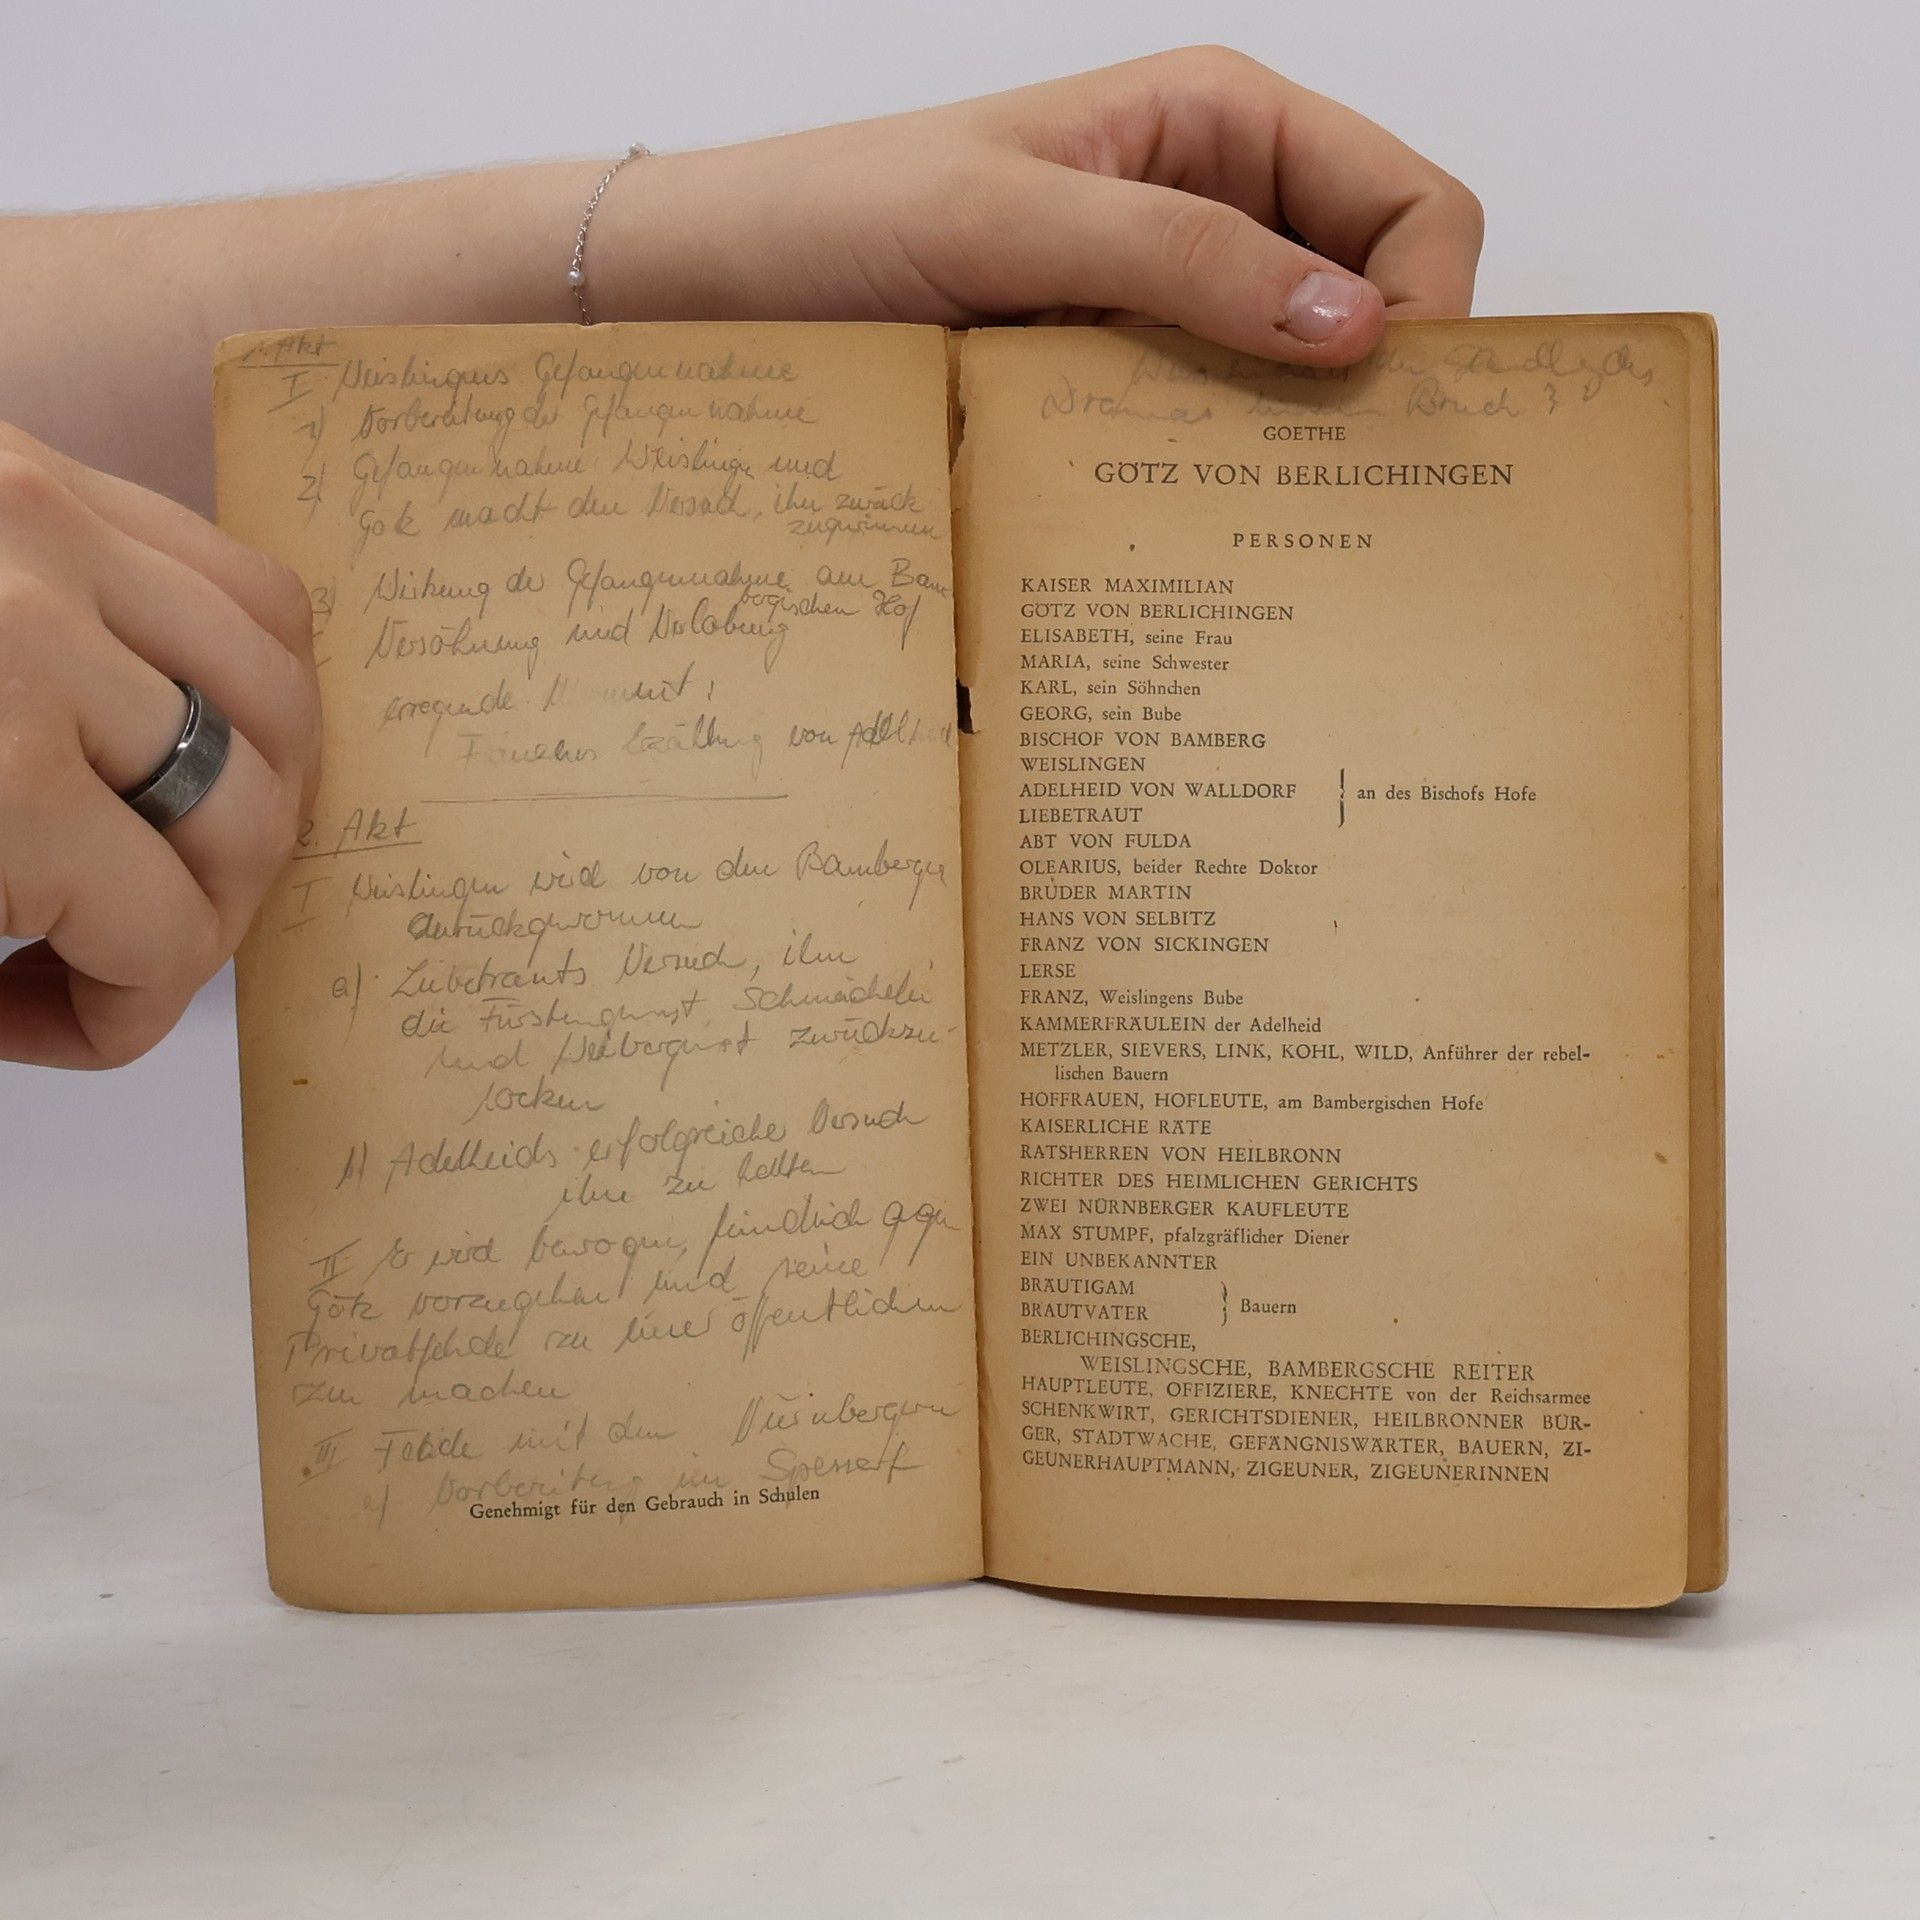 1. Akt
I Weislingens Gefangennahme
1) Vorbereitung der Gefangennahme
2) Gefangennahme Weislingen und
Götz macht den Versuch, ihn zurück
zugewinnen
3) Wirkung der Gefangennahme am Bam-
bergischen Hof
Versöhnung und Verlobung
erregende Moment:
Erzählung von Adelheid
2. Akt
I Weislingen wird von den Bamberger
zurückgewonnen
a) Liebetrauts Versuch, ihn
die Fürstengunst, Schmeichelei
und Weibergunst zurückzu-
locken
b) Adelheids erfolgreicher Versuch
ihn zu halten
II Er wird bewogen, feindlich gegen
Götz vorzugehen und seine
Privatfehde zu einer öffentlichen
zu machen
III Fehde mit den Nürnbergern
a) Vorbereitung im Spessart
Genehmigt für den Gebrauch in Schulen
der Handlg des
Dramas Bruch?
GOETHE
GÖTZ VON BERLICHINGEN
PERSONEN
KAISER MAXIMILIAN
GÖTZ VON BERLICHINGEN
ELISABETH, seine Frau
MARIA, seine Schwester
KARL, sein Söhnchen
GEORG, sein Bube
BISCHOF VON BAMBERG
WEISLINGEN
ADELHEID VON WALLDORF } an des Bischofs Hofe
LIEBETRAUT
ABT VON FULDA
OLEARIUS, beider Rechte Doktor
BRUDER MARTIN
HANS VON SELBITZ
FRANZ VON SICKINGEN
LERSE
FRANZ, Weislingens Bube
KAMMERFRÄULEIN der Adelheid
METZLER, SIEVERS, LINK, KOHL, WILD, Anführer der rebel-
lischen Bauern
HOFFRAUEN, HOFLEUTE, am Bambergischen Hofe
KAISERLICHE RÄTE
RATSHERREN VON HEILBRONN
RICHTER DES HEIMLICHEN GERICHTS
ZWEI NÜRNBERGER KAUFLEUTE
MAX STUMPF, pfalzgräflicher Diener
EIN UNBEKANNTER
BRÄUTIGAM
BRAUTVATER } Bauern
BERLICHINGSCHE,
WEISLINGSCHE, BAMBERGSCHE REITER
HAUPTLEUTE, OFFIZIERE, KNECHTE von der Reichsarmee
SCHENKWIRT, GERICHTSDIENER, HEILBRONNER BÜR-
GER, STADTWACHE, GEFÄNGNISWÄRTER, BAUERN, ZI-
GEUNERHAUPTMANN, ZIGEUNER, ZIGEUNERINNEN